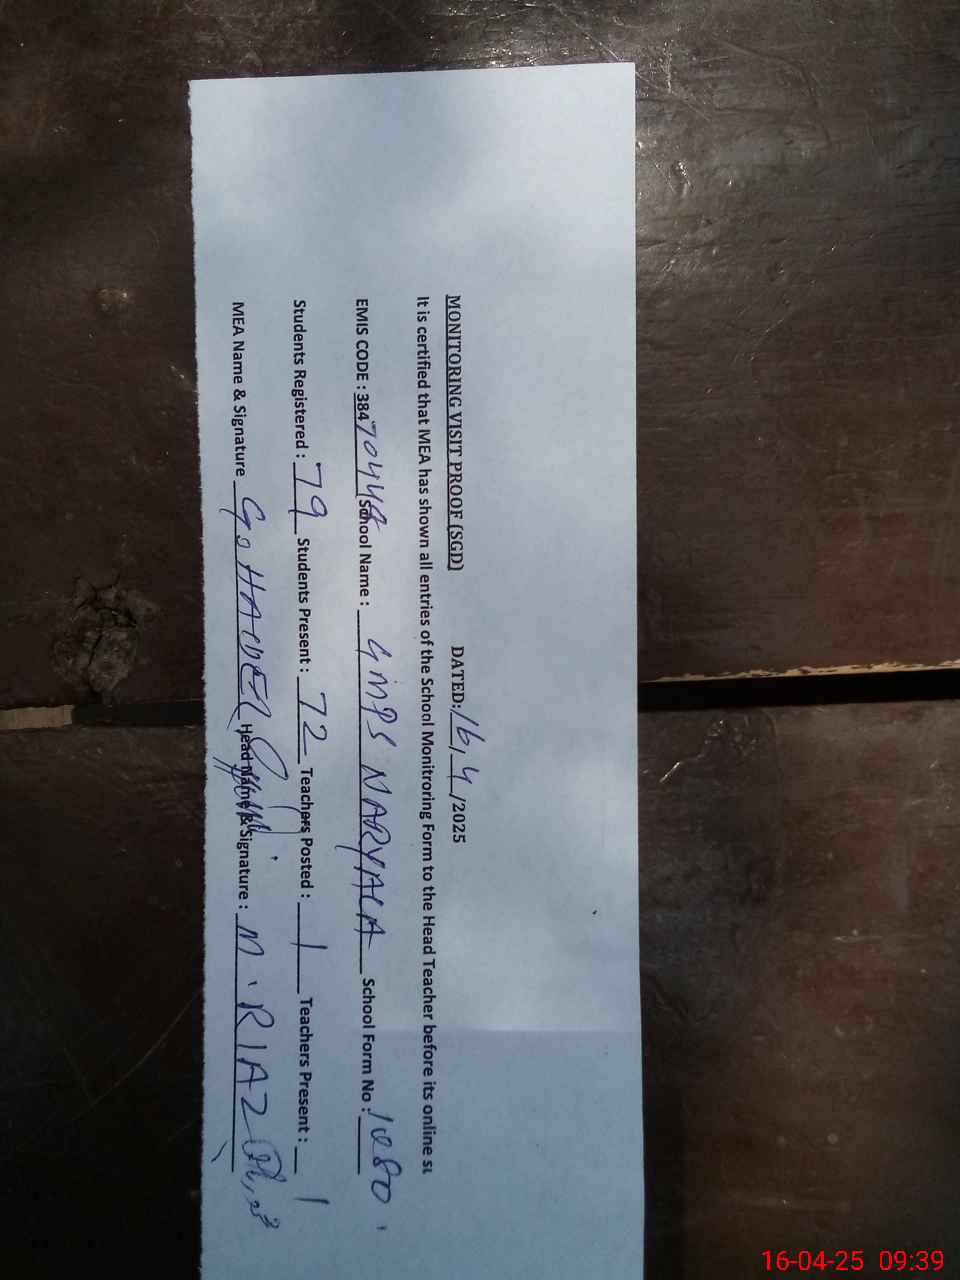 MONITORING VISIT PROOF (SGD) DATED: 16, 4 /2025
It is certified that MEA has shown all entries of the School Monitroring Form to the Head Teacher before its online su
EMIS CODE : 384 School Name : GMPS NARYALA School Form No : 1080
Students Registered : 79 Students Present : 72 Teachers Posted : 1 Teachers Present : 1
MEA Name & Signature Head Name & Signature : M. RIAZ
16-04-25 09:39